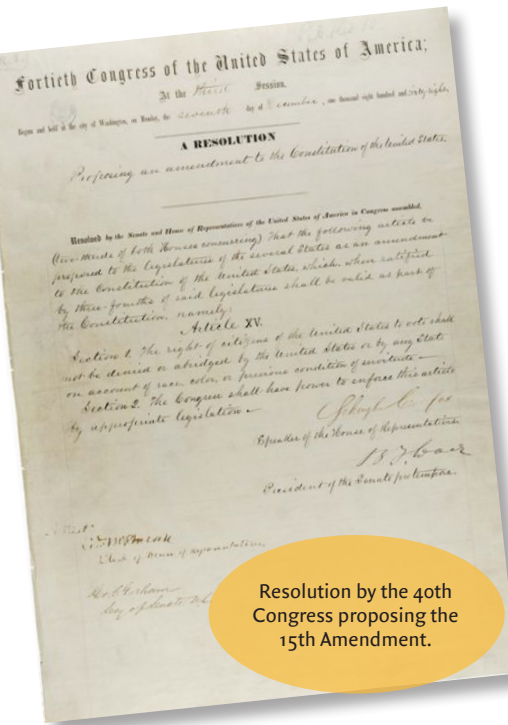 Fortieth Congress of the United States of America;
At the third Session,
Begun and held at the city of Washington, on Monday, the seventh day of December, one thousand eight hundred and sixty-eight.
A RESOLUTION
Proposing an amendment to the Constitution of the United States.
Resolved by the Senate and House of Representatives of the United States of America in Congress assembled,
(two-thirds of both Houses concurring) That the following article be
proposed to the legislatures of the several States as an amendment
to the Constitution of the United States, which, when ratified
by three-fourths of said legislatures shall be valid as part of
the Constitution, namely:
Article XV.
Section 1. The right of citizens of the United States to vote shall
not be denied or abridged by the United States or by any State
on account of race, color, or previous condition of servitude—
Section 2. The Congress shall have power to enforce this article
by appropriate legislation—
Speaker of the House of Representatives.
President of the Senate pro tempore.
Attest
Clerk of House of Representatives.
Secy of Senate
Resolution by the 40th
Congress proposing the
15th Amendment.